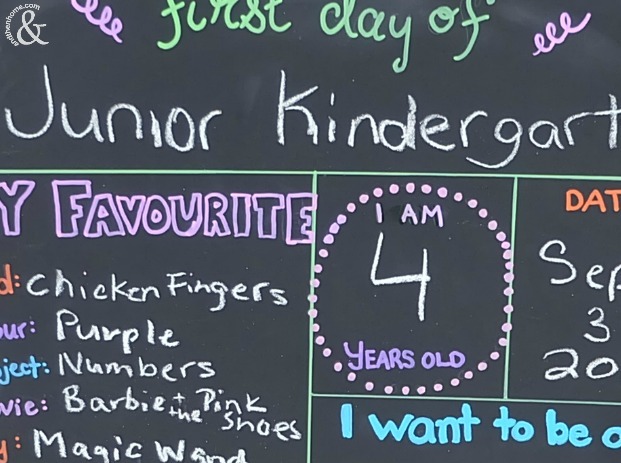 andthenhome.com
&
first day of
Junior Kindergart
Y FAVOURITE
I AM
4
YEARS OLD
DAT
Sep
3
20
d: Chicken Fingers
our: Purple
ject: Numbers
vie: Barbie + the Pink Shoes
y: Magic Wand
I want to be a